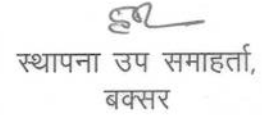 स्थापना उप समाहर्ता,
बक्सर